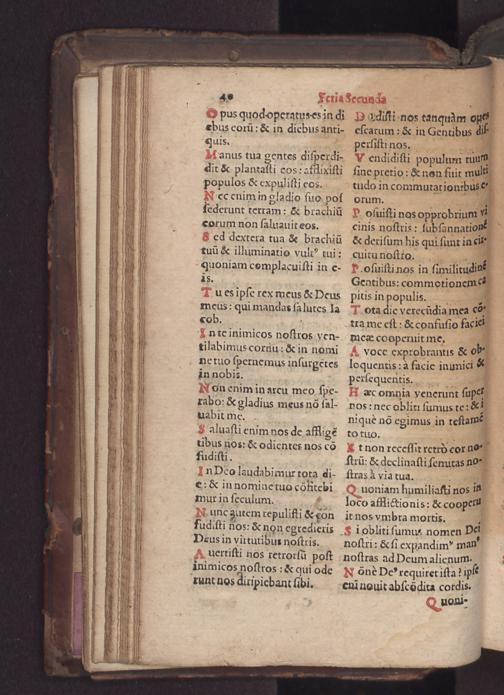 40 Feria Secunda
Opus quod operatus es in di
ebus corū: & in diebus anti-
quis.
Manus tua gentes disperdi-
dit & plantasti eos: afflixisti
populos & expulisti eos.
Nec enim in gladio suo pos
sederunt terram: & brachiū
eorum non saluauit eos.
Sed dextera tua & brachiū
tuū & illuminatio vult⁹ tui:
quoniam complacuisti in e-
is.
Tu es ipse rex meus & Deus
meus: qui mandas salutes Ia
cob.
In te inimicos nostros ven-
tilabimus cornu: & in nomi
ne tuo spernemus insurgētes
in nobis.
Non enim in arcu meo spe-
rabo: & gladius meus nō sal-
uabit me.
Saluasti enim nos de affligē
tibus nos: & odientes nos cō
fudisti.
In Deo laudabimur tota di-
e: & in nomine tuo cōfitebi
mur in seculum.
Nunc autem repulisti & con
fudisti nos: & non egredieris
Deus in virtutibus nostris.
Auertisti nos retrorsū post
inimicos nostros: & qui ode
runt nos diripiebant sibi.
Dedisti nos tanquàm oues
escarum: & in Gentibus dis
persisti nos.
Vendidisti populum tuum
sine pretio: & non fuit multi
tudo in commutationibus e-
orum.
Posuisti nos opprobrium vi
cinis nostris: subsannationē
& derisum his qui sunt in cir-
cuitu nostro.
Posuisti nos in similitudinē
Gentibus: commotionem ca
pitis in populis.
Tota die verecūdia mea cō-
tra me est: & confusio faciei
meæ cooperuit me.
A voce exprobrantis & ob-
loquentis: a facie inimici &
persequentis.
Hæc omnia venerunt super
nos: nec obliti sumus te: & i
niquè nō egimus in testamē
to tuo.
Et non recessit retrò cor no-
strū: & declinasti semitas no-
stras à via tua.
Quoniam humiliasti nos in
loco afflictionis: & cooperu
it nos vmbra mortis.
Si obliti sumus nomen Dei
nostri: & si expandim⁹ man⁹
nostras ad Deum alienum.
Nōnè De⁹ requiret ista? ipse
enī nouit abscōdita cordis.
Quoni-